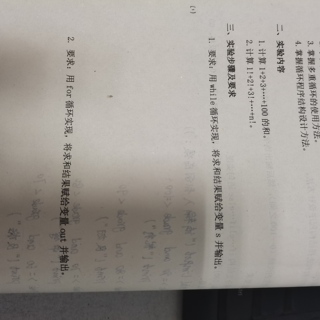 3. 掌握多重循环的使用方法。
4. 掌握循环程序结构设计方法。
二、实验内容
1. 计算 1+2+3+…+100 的和。
2. 计算 1!+2!+3!+…+n!。
三、实验步骤及要求
1. 要求：用 while 循环实现，将求和结果赋给变量 s 并输出。
2. 要求：用 for 循环实现，将求和结果赋给变量 out 并输出。